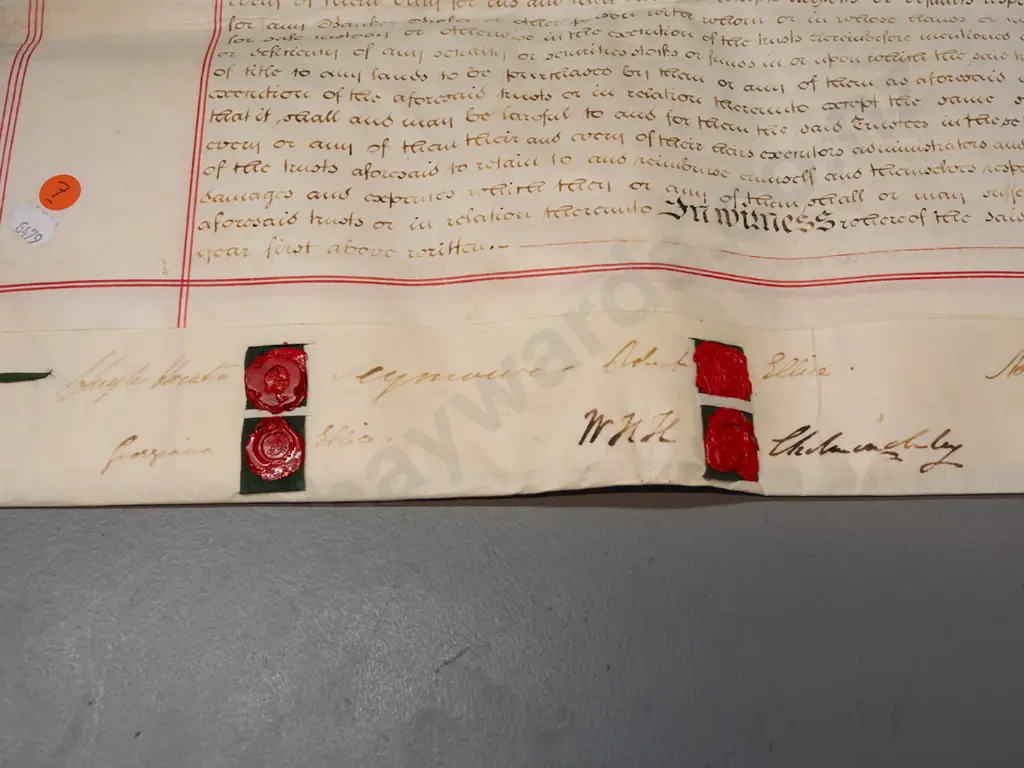 for any Banker Broker or other person with whom or in whose hands or
for safe custody or otherwise in the execution of the trusts hereinbefore mentioned
or deficiency of any security or securities stocks or funds in or upon which the said
of title to any lands to be purchased by them or any of them as aforesaid
execution of the aforesaid trusts or in relation thereunto except the same
that it shall and may be lawful to and for them the said Trustees in these
every or any of them their and every of their heirs executors administrators and
of the trusts aforesaid to retain to and reimburse himself and themselves
damages and expenses which they or any of them shall or may
aforesaid trusts or in relation thereunto In Witness whereof the said
year first above written.
7
6479
Hugh Horatio Seymour Robert Ellice.
Georgiana Ellice. W H H Cholmondeley
haywards